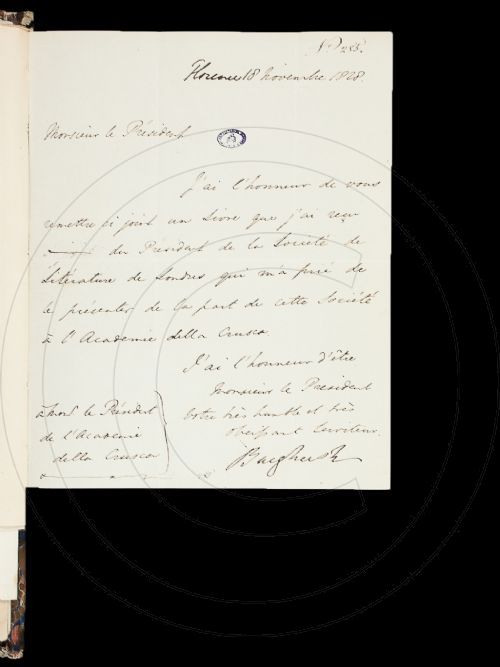 N.º 285.
Florence 18 Novembre 1828.
Monsieur le Président
J'ai l'honneur de vous
remettre ci joint un Livre que j'ai reçu
du Président de la Société de
Litérature de Londres qui m'a prié de
le présenter de la part de cette Société
à l'Academie della Crusca.
J'ai l'honneur d'être
Monsieur le President
Votre très humble et très
obeissant Serviteur.
Burghersh
à Monsr le Président
de l'Academie
della Crusca